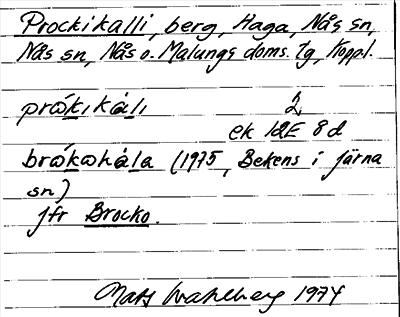 Prockikalli, berg, Haga, Nås sn,
Nås sn, Nås o. Malungs doms. tg, Koppl.
pråkıkàlı 2
ek 12E 8d
bråkωhàla (1975, Bekens i Järna
sn)
jfr Brocko.
Mats Wahlberg 1974